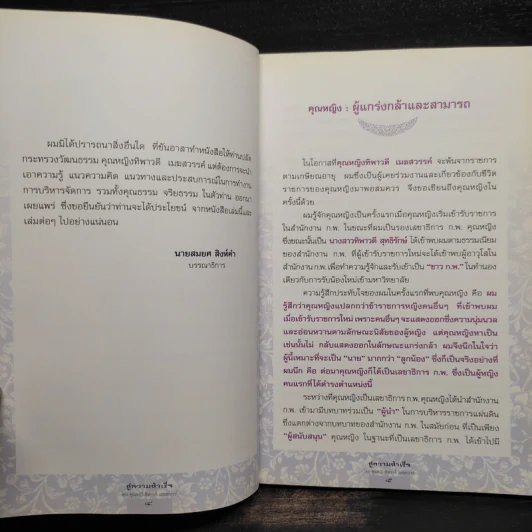 ผมมิได้ปรารถนาสิ่งอื่นใด ที่ขันอาสาทำหนังสือให้ท่านปลัด
กระทรวงวัฒนธรรม คุณหญิงทิพาวดี เมฆสวรรค์ แต่ต้องการจะนำ
เอาความรู้ แนวความคิด แนวทางและประสบการณ์ในการทำงาน
การบริหารจัดการ รวมทั้งคุณธรรม จริยธรรม ในตัวท่าน ออกมา
เผยแพร่ ซึ่งขอยืนยันว่าท่านจะได้ประโยชน์ จากหนังสือเล่มนี้และ
เล่มต่อๆ ไปอย่างแน่นอน
นายสมยศ สิงห์คำ
บรรณาธิการ
สู่ความสำเร็จ
๘
คุณหญิง : ผู้แกร่งกล้าและสามารถ
ในโอกาสที่คุณหญิงทิพาวดี เมฆสวรรค์ จะพ้นจากราชการ
ตามเกษียณอายุ ผมซึ่งเป็นผู้เคยร่วมงานและเกี่ยวข้องกับชีวิต
ราชการของคุณหญิงมาพอสมควร จึงขอเขียนถึงคุณหญิงใน
ครั้งนี้ด้วย
ผมรู้จักคุณหญิงเป็นครั้งแรกเมื่อคุณหญิงเริ่มเข้ารับราชการ
ในสำนักงาน ก.พ. ในขณะที่ผมเป็นรองเลขาธิการ ก.พ. คุณหญิง
ซึ่งขณะนั้นเป็น นางสาวทิพาวดี สุทธิรักษ์ ได้เข้าพบผมตามธรรมเนียม
ของสำนักงาน ก.พ. ที่ผู้เข้ารับราชการใหม่จะได้เข้าพบผู้อาวุโสใน
สำนักงาน ก.พ. เพื่อทำความรู้จักและรับเข้าเป็น "ชาว ก.พ." ในทำนอง
เดียวกับการรับน้องใหม่เข้ามหาวิทยาลัย
ความรู้สึกประทับใจของผมในครั้งแรกที่พบคุณหญิง คือ ผม
รู้สึกว่าคุณหญิงแปลกกว่าข้าราชการหญิงคนอื่นๆ ที่เข้าพบผม
เมื่อเข้ารับราชการใหม่ เพราะคนอื่นๆ จะแสดงออกซึ่งความนุ่มนวล
และอ่อนหวานตามลักษณะนิสัยของผู้หญิง แต่คุณหญิงหาเป็น
เช่นนั้นไม่ กลับแสดงออกในลักษณะแกร่งกล้า ผมจึงนึกในใจว่า
ผู้นี้เหมาะที่จะเป็น "นาย" มากกว่า "ลูกน้อง" ซึ่งก็เป็นจริงอย่างที่
ผมนึก คือ ต่อมาคุณหญิงก็ได้เป็นเลขาธิการ ก.พ. ซึ่งเป็นผู้หญิง
คนแรกที่ได้ดำรงตำแหน่งนี้
ระหว่างที่คุณหญิงเป็นเลขาธิการ ก.พ. คุณหญิงได้นำสำนักงาน
ก.พ. เข้ามามีบทบาทร่วมเป็น "ผู้นำ" ในการบริหารราชการแผ่นดิน
ซึ่งแตกต่างจากบทบาทของสำนักงาน ก.พ. ในสมัยก่อน ที่เป็นเพียง
"ผู้สนับสนุน" คุณหญิง ในฐานะที่เป็นเลขาธิการ ก.พ. ได้เข้าไปมี
สู่ความสำเร็จ